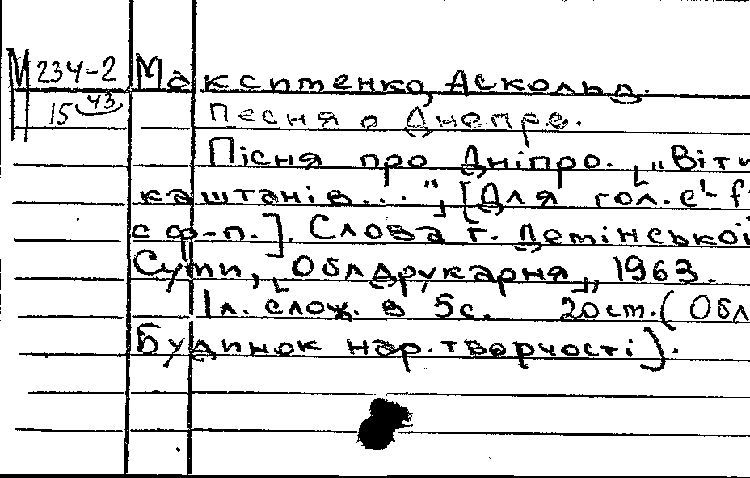 М 234-2 Максименко, Аскольд.
15 43 Песня о Днепре.
Пісня про Дніпро. „Віти
каштанів...", [Для гол. e¹-f
с ф-п.]. Слова Г. Демінської
Суми, „Облдрукарня", 1963.
1л. слож. в 5с. 20ст. (Обл
Будинок нар. творчості).